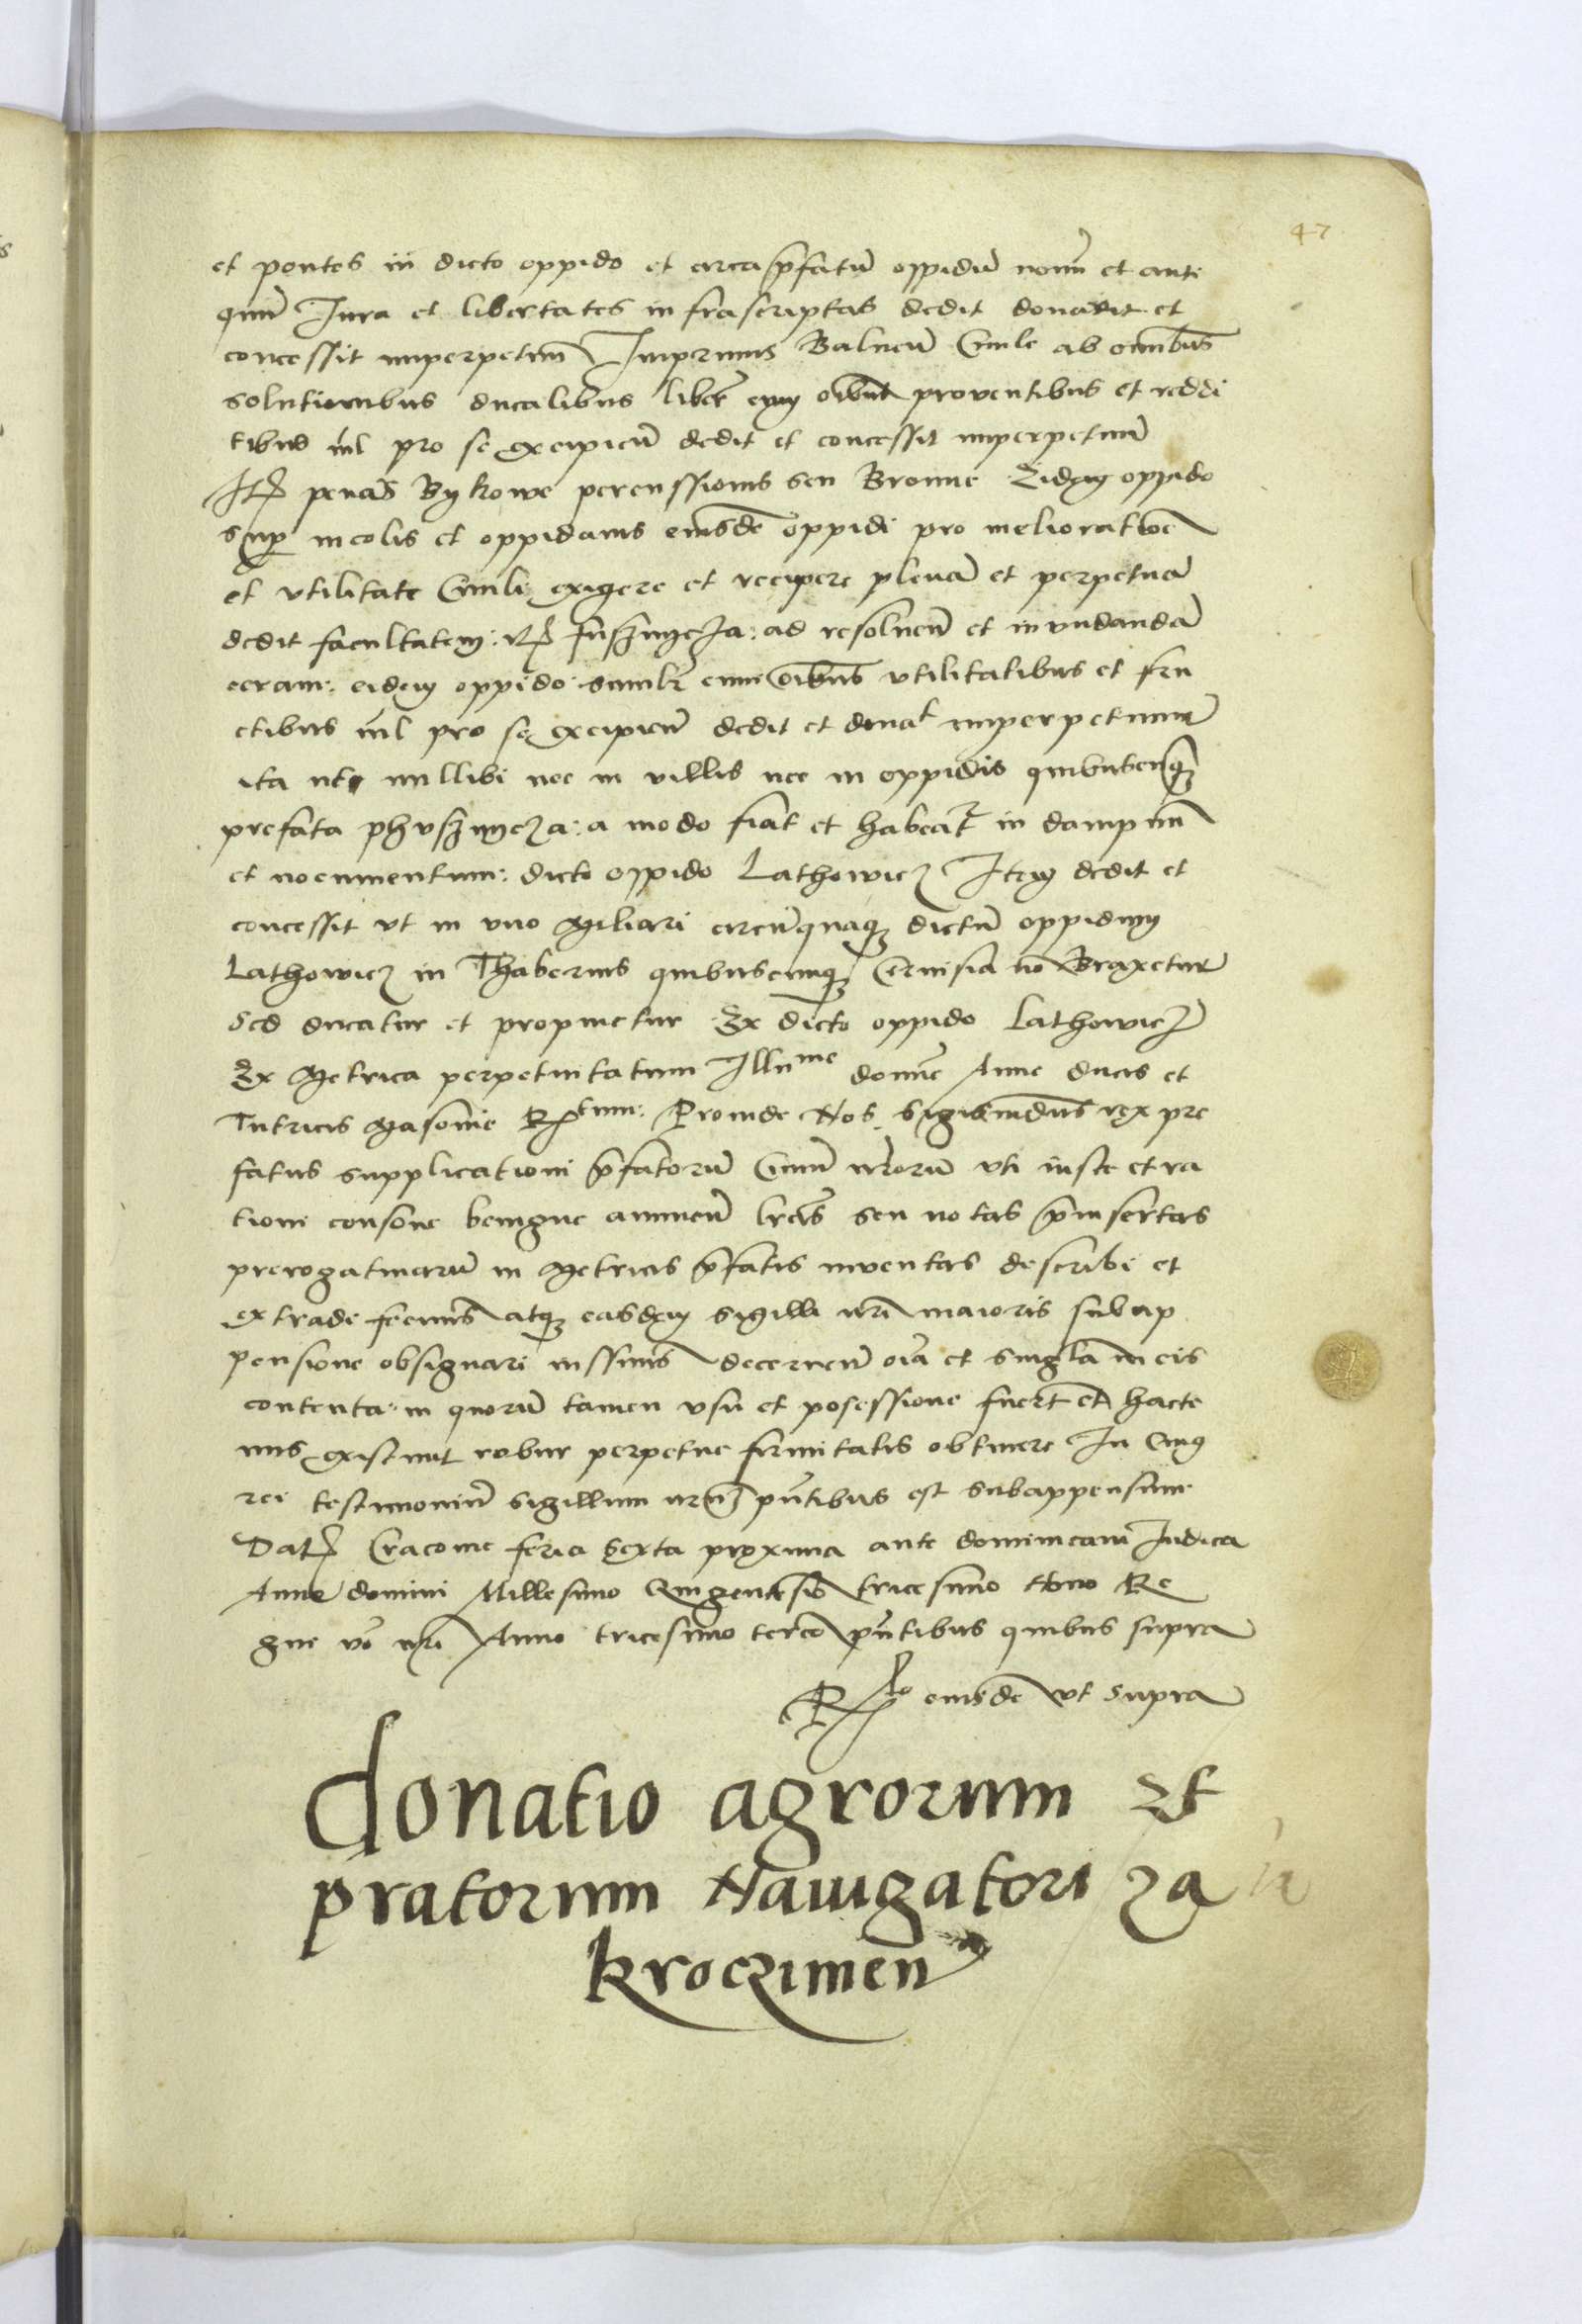 47
et pontes in dicto oppido et circa p̃fatũ oppidũ nouũ et anti
quũ Jura et libertates infrascriptas dedit donauit et
concessit imperpetuũ Inprimis Balneũ Ciuile ab omnibus
solutionibus ducalibus liberũ cum oĩbus prouentibus et reddi
tibus nil pro se excipieñ dedit et concessit imperpetuũ
Itẽ penas Bykowe percussionis seu Bronne Eidem oppido
sup incolis et oppidanis eiusdẽ oppidi pro melioratioẽ
et vtilitate Ciuili exigere et recipere plenã et perpetuã
dedit facultatem: Itẽ ad resolueñ et mundandã
ceram: eidem oppido similr cum oĩbus vtilitatibus et fru
ctibus nil pro se excipieñ dedit et donat imperpetuum
ita ut nullibi nec in villis nec in oppidis quibuscunqz
prefata a modo fiat et habeatr in dampnũ
et nocumentum: dicto oppido Lathowicz Item dedit et
concessit vt in vno Miliari circũquaqz dictũ oppidum
Lathowicz in Thabernis quibuscunqz Ceruisia nõ Braxetur
sed ducatur et propinetur Ex dicto oppido Lathowicz
Ex Metrica perpetuitatum Illume domne Anne ducis et
Tutricis Masouie Rtum: Proinde Nos Sigismũdus rex pre
fatus supplicationi p̃fatorũ Ciuiũ nr̃orũ vti iuste et ra
tioni consone benigne annueñ lr̃as seu notas p̃insertas
prerogatiuarũ in Metricis p̃fatis inuentas describi et
extradi fecimus atqz easdem sigilli nr̃i maioris subap
pensione obsignari iussimus decerneñ oĩa et singla in eis
contenta: in quorũ tamen vsu et posessione fuert et hacte
nus existunt robur perpetue firmitatis obtinere In Cuius
rei testimoniũ sigillum nr̃m pñtibus est subappensum
Datẽ Cracouie feria sexta proxima ante dominicam Judica
Anno domini Millesimo Quingentesĩo tricesimo Nono Re
gni vo nr̃i Anno tricesimo tercio pñtibus quibus supra
Rlo eiusdẽ vt supra
donatio agrorum Et
pratorum Nauigatori za
kroczimeñ